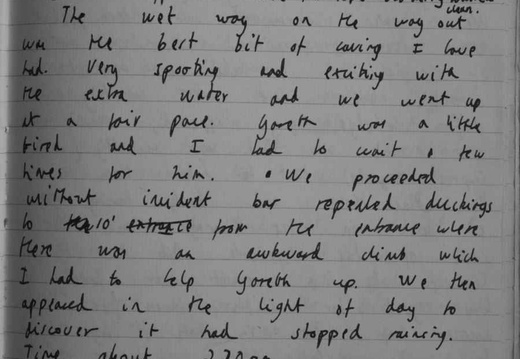 clean.
The wet way on the way out
was the best bit of caving I have
had. Very sporting and exciting with
the extra water and we went up
at a fair pace. Gareth was a little
tired and I had to wait a few
times for him. We proceeded
without incident bar repeated duckings
to 10' entrance from the entrance where
there was an awkward climb which
I had to help Gareth up. We then
appeared in the light of day to
discover it had stopped raining.
Time about